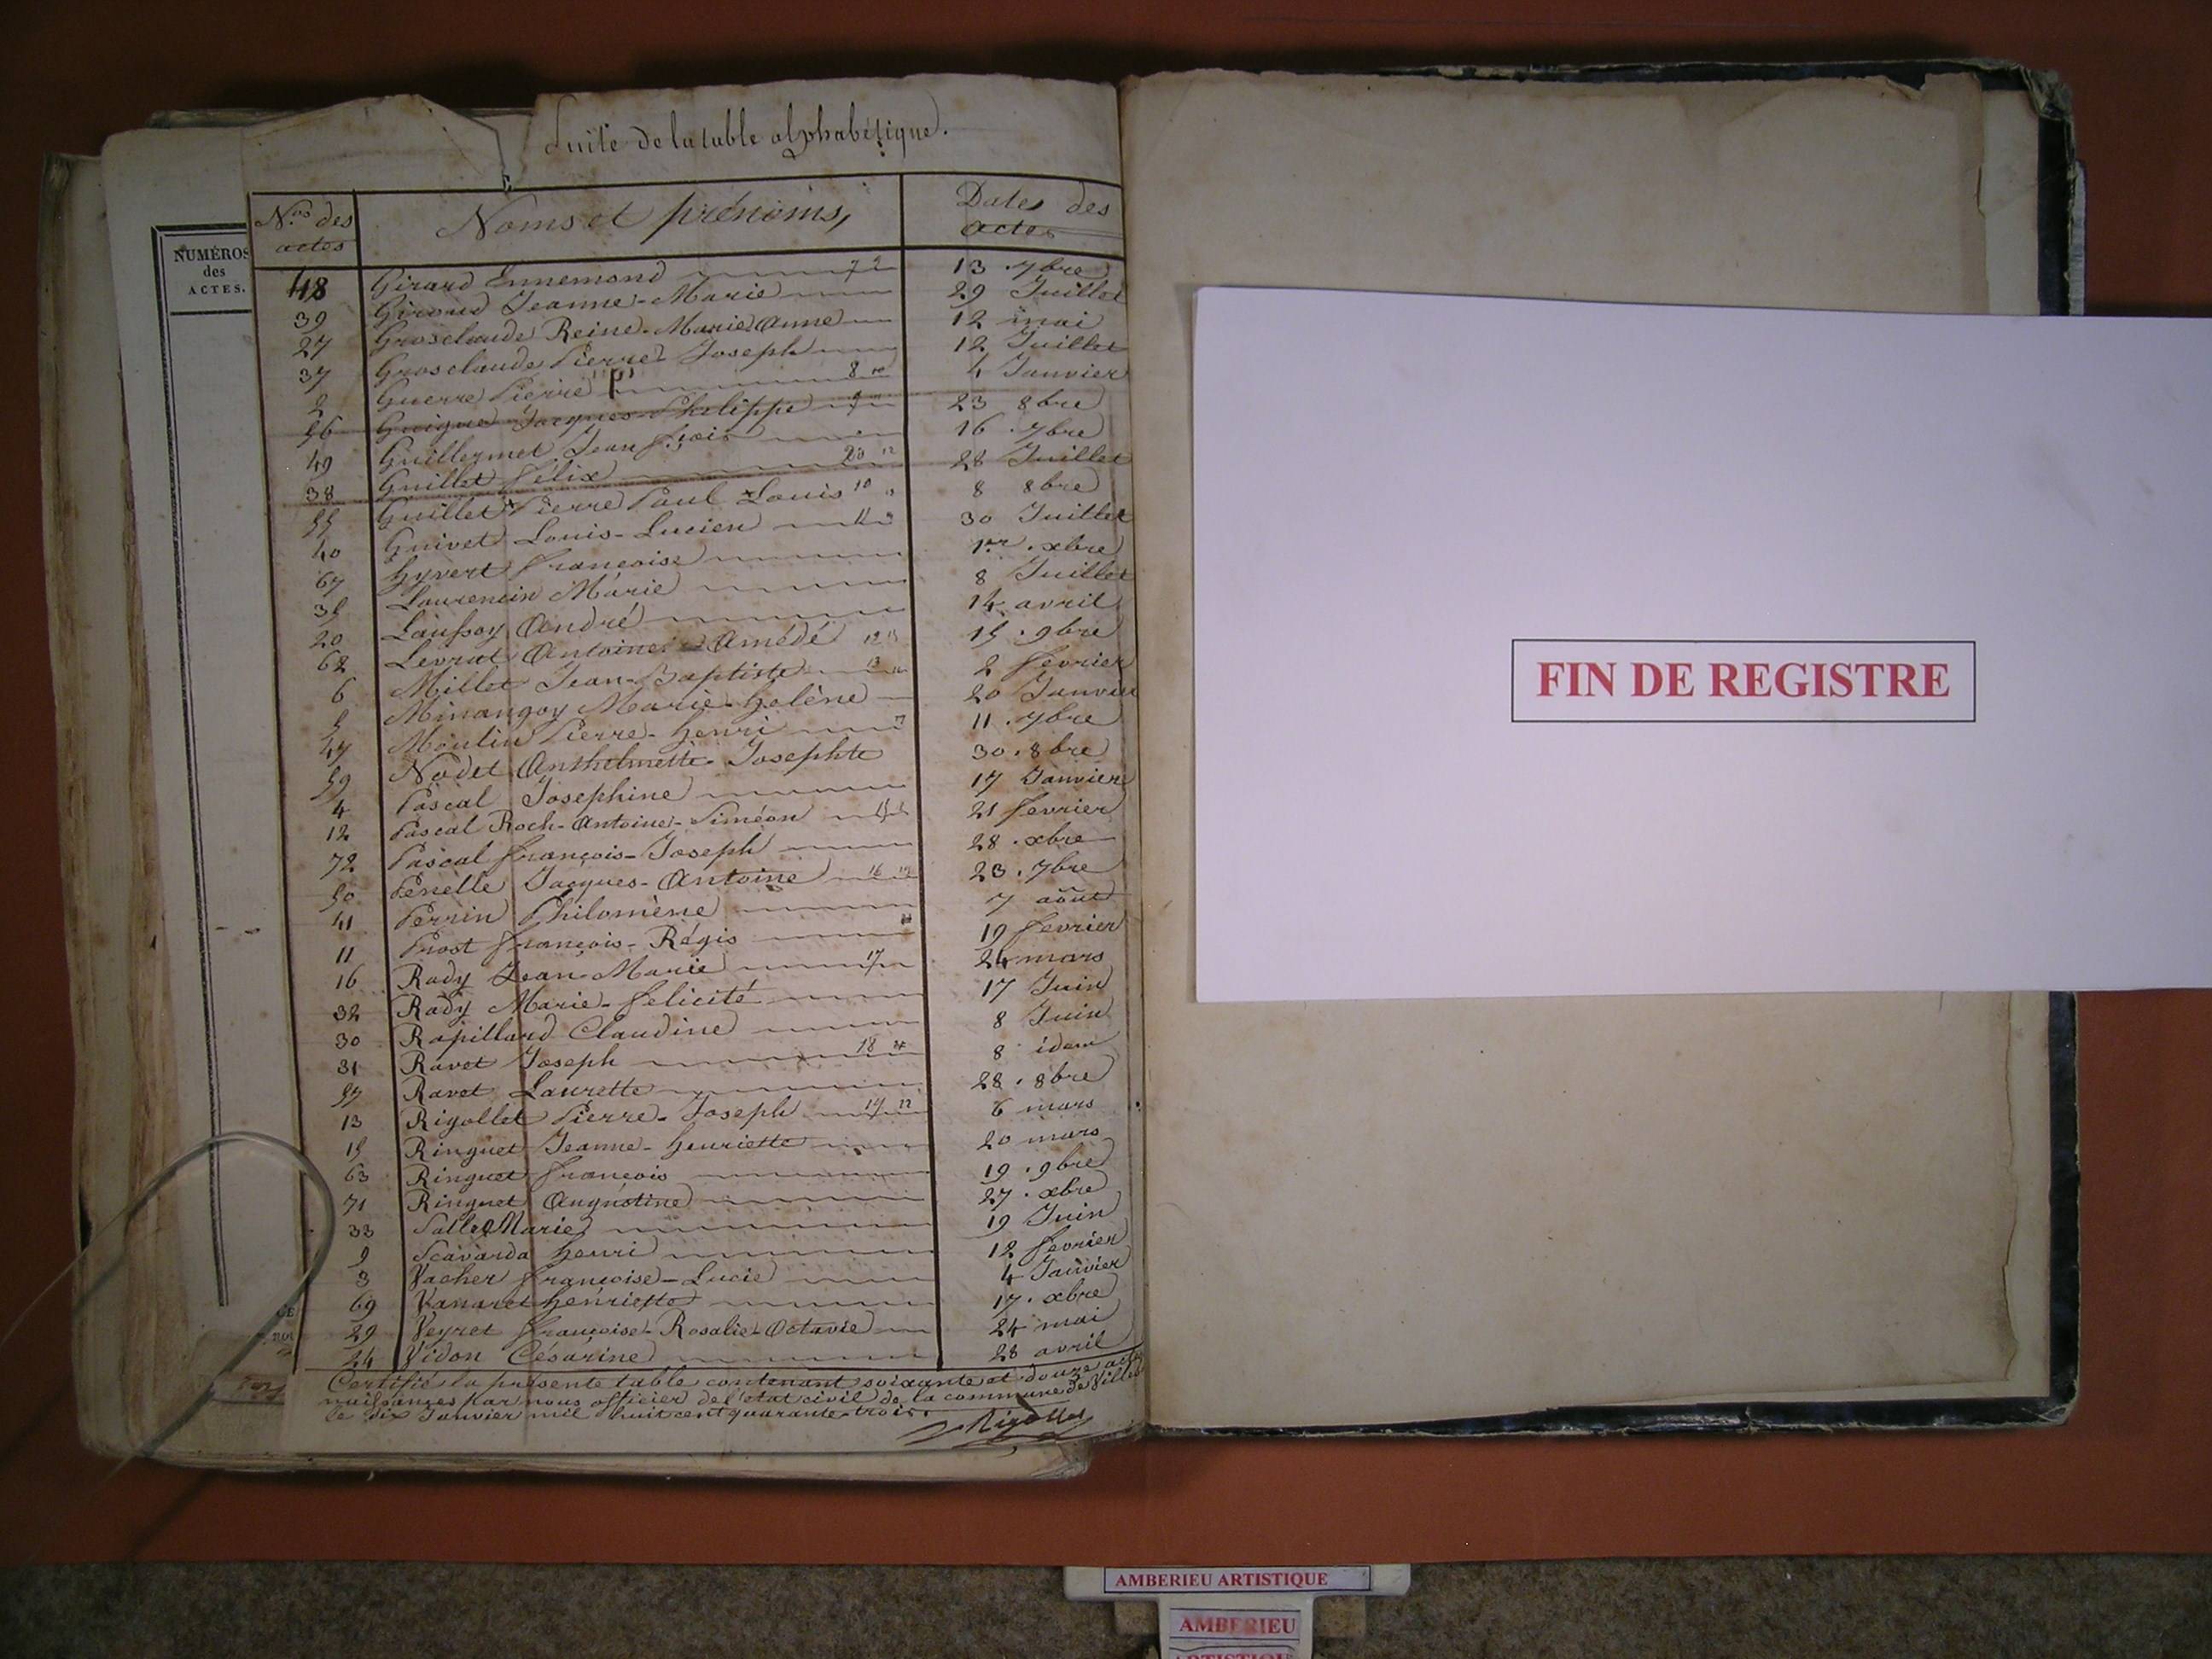 Suite de la table alphabétique.
NUMÉROS
des
ACTES.
N.os des actes Noms et prénoms, Dates des actes
48 Girard Ennemond 7 13 . 7bre
39 Giroud Jeanne-Marie 29 Juillet
27 Grosclaude Reine-Marie Anne 12 mai
37 Grosclaude Pierre-Joseph 12 Juillet
2 Guerre Pierre "P" 8 4 Janvier
56 Guigue Jacques-Philippe 9 23 8bre
49 Guillermet Jean fçois 16 . 7bre
38 Guillet Félix 28 Juillet
55 Guillet Pierre Paul Louis 10 8 8bre
40 Guivet Louis-Lucien 11 30 Juillet
67 Hyvert françoise 1er . xbre
35 Laurencin Marie 8 Juillet
20 Laussoy André 14 avril
62 Levrat Antoine Amédé 12 15 . 9bre
6 Millet Jean-Baptiste 13 2 février
5 Minangoy Marie-helène 20 Janvier
47 Moulin Pierre-henri 11 . 7bre
59 Nodet Anthelmette-Josephte 30 . 8bre
4 Pascal Josephine 17 Janvier
12 Pascal Roch-Antoine-Siméon 15 21 fevrier
72 Pascal françois-Joseph 28 . xbre
50 Penelle Jacques-Antoine 16 23 . 7bre
41 Perrin Philomène 7 août
11 Prost françois-Régis 19 fevrier
16 Rady Jean-Marie 17 24 mars
32 Rady Marie-felicité 17 Juin
30 Rapillard Claudine 8 Juin
31 Ravet Joseph 18 8 idem
57 Ravet Laurette 28 . 8bre
13 Rigollet Pierre-Joseph 19 6 mars
15 Ringuet Jeanne-henriette 20 mars
63 Ringuet françois 19 . 9bre
71 Ringuet Augustine 27 . xbre
33 Salle Marie 19 Juin
9 Scavarda henri 12 fevrier
3 Vacher françoise-Lucie 4 Janvier
69 Vanaret henriette 17 . xbre
29 Veyret françoise-Rosalie-Octavie 24 mai
24 Vidon Césarine 28 avril
Certifié la présente table contenant soixante et douze actes
naissances par nous officier de l'état civil de la commune de Ville
le dix Janvier mil huit cent quarante trois.
Rigollet
FIN DE REGISTRE
AMBERIEU ARTISTIQUE
AMBERIEU
ARTISTIQUE